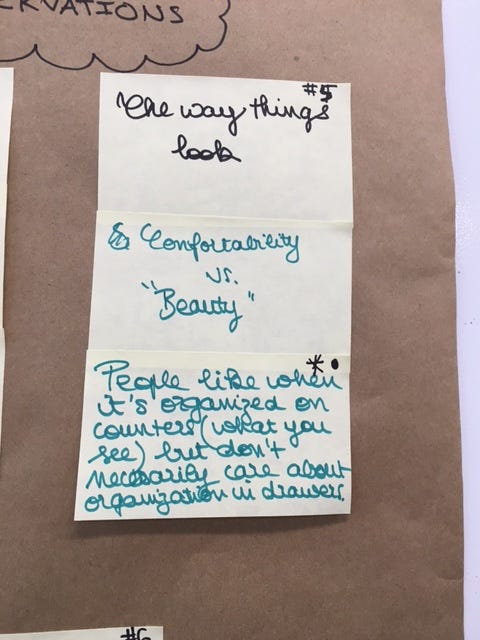 ERVATIONS
#5
The way things
look
& Confortability
vs.
"Beauty"
* •
People like when
it's organized on
counters (what you
see) but don't
necessarily care about
organization in drawers.
#6